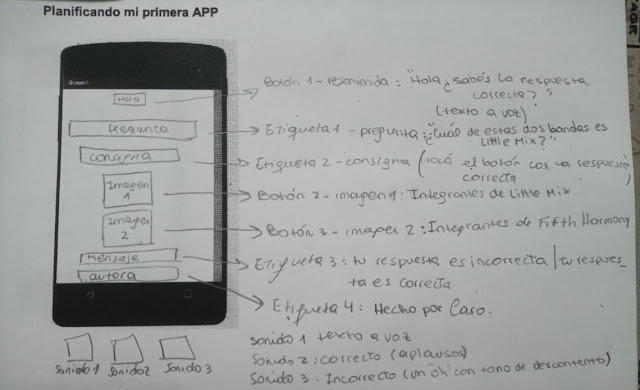 Planificando mi primera APP
Screen1
Hola
Pregunta
Consigna
Imagen 1
Imagen 2
Mensaje
autora
Botón 1 - bienvenida: "Hola, ¿sabés la respuesta
correcta?"
(texto a voz)
Etiqueta 1 - pregunta: "¿Cuál de estas dos bandas es
Little Mix?"
Etiqueta 2 - consigna (tocá el botón con la respuesta
correcta)
Botón 2 - imagen 1: Integrantes de Little Mix
Botón 3 - imagen 2: Integrantes de Fifth Harmony
Etiqueta 3: tu respuesta es incorrecta / tu respues_
ta es correcta
Etiqueta 4: Hecho por Caro.
Sonido 1 Sonido 2 Sonido 3
Sonido 1 texto a voz
Sonido 2: correcto (aplausos)
Sonido 3: Incorrecto (un "oh" con tono de descontento)